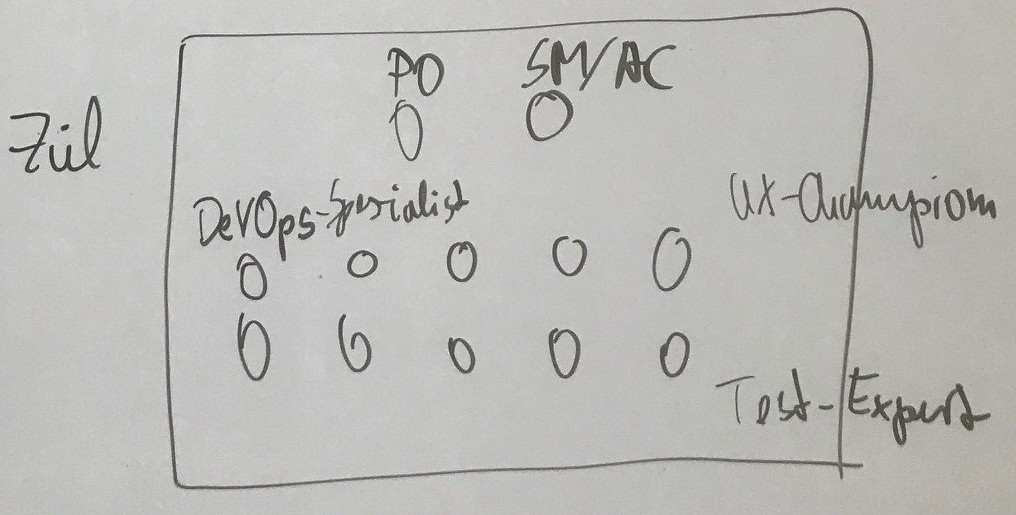 PO SM/AC
Ziel
DevOps-Spezialist
UX-Champion
Test-Expert